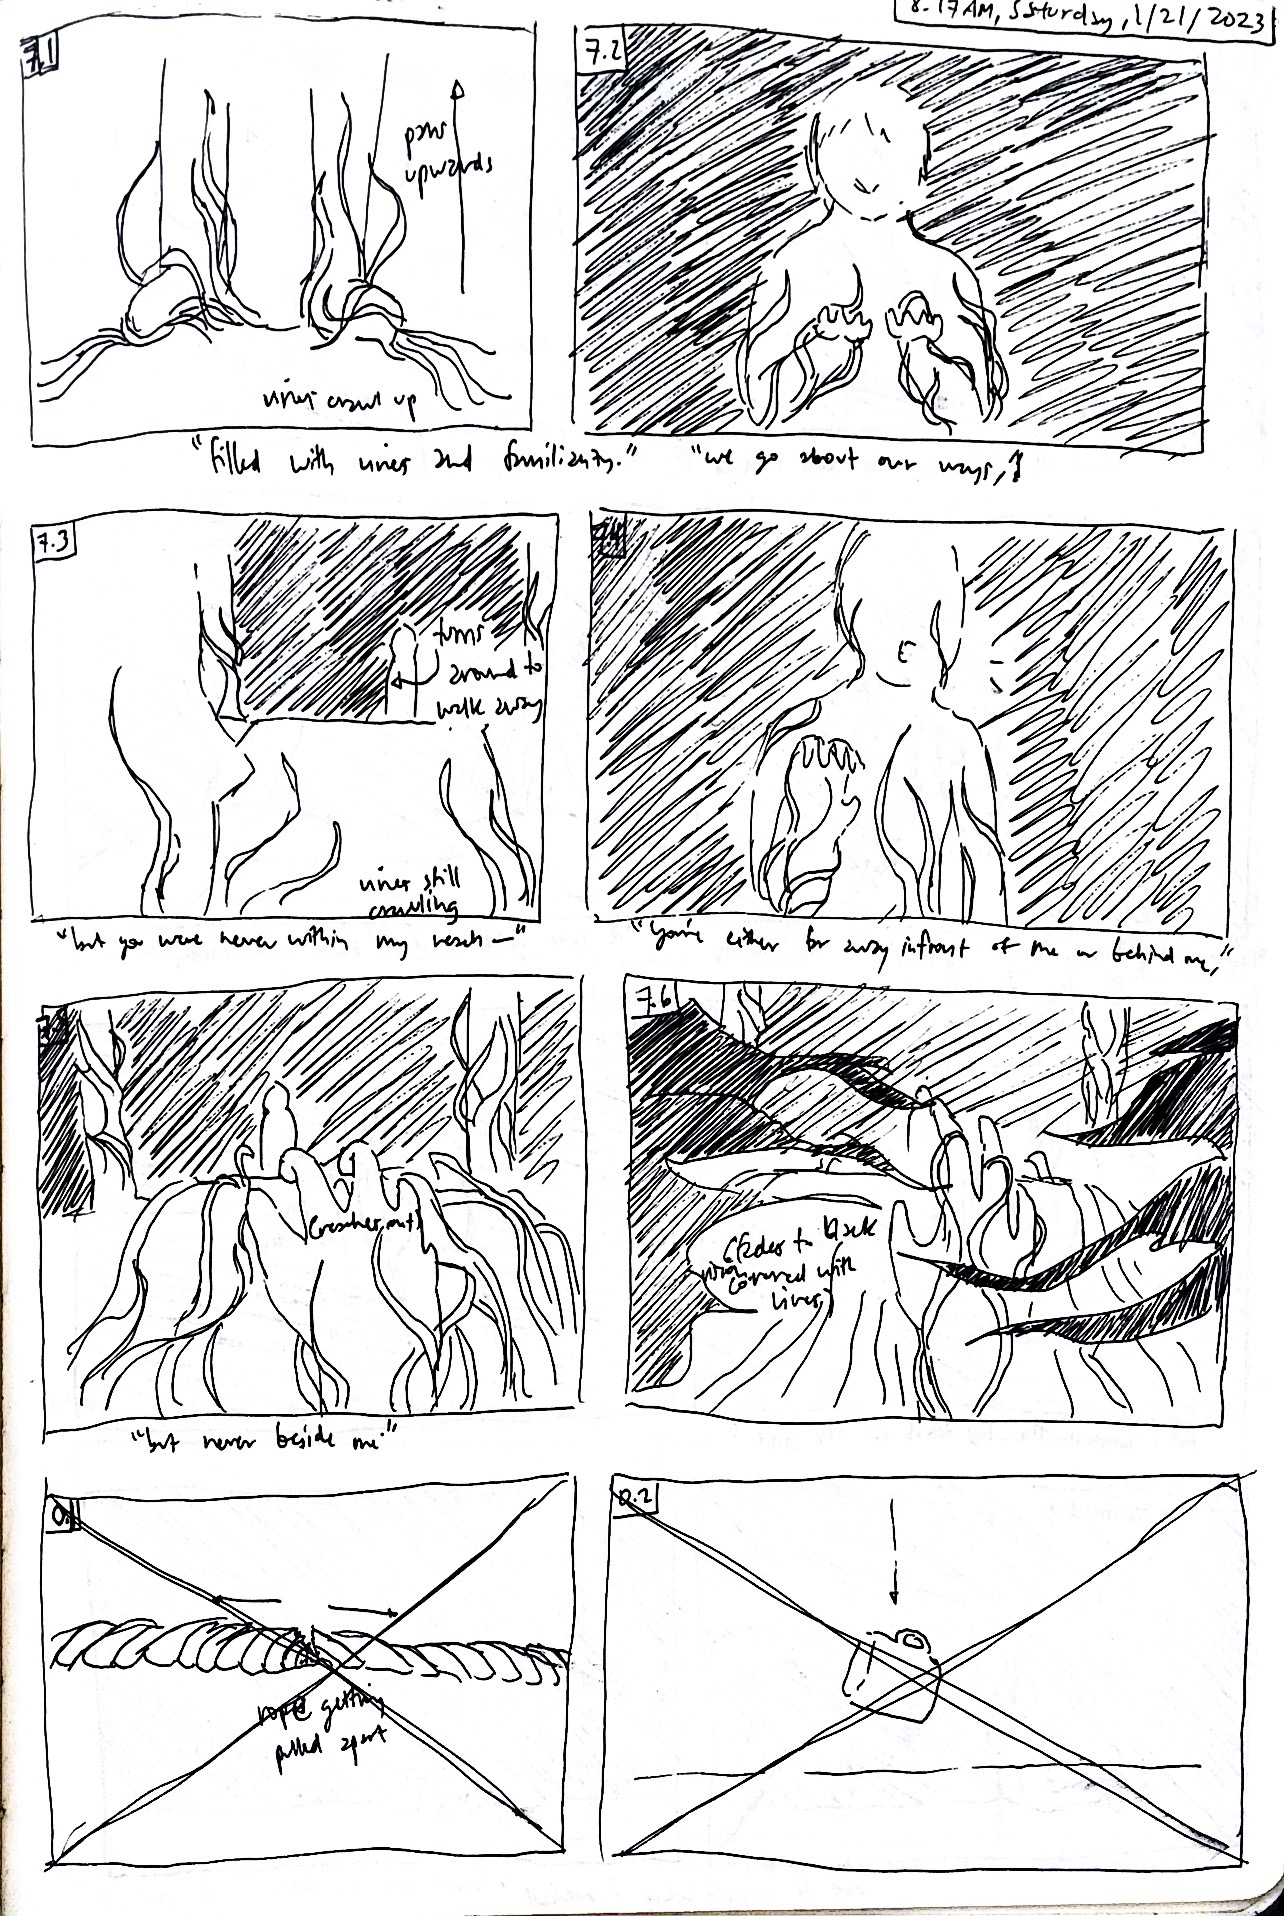 8:17 AM, Saturday, 1/21/2023
7.1
pans
upwards
vines crawl up
"filled with vines and familiarity."
7.2
"we go about our ways,"
7.3
turns
around to
walk away
vines still
crawling
"but you were never within my reach—"
7.4
"you're either far away infront of me or behind me,"
(reaches out)
"but never beside me."
7.6
(fades to black
covered with
vines)
0.1
rope getting
pulled apart
0.2